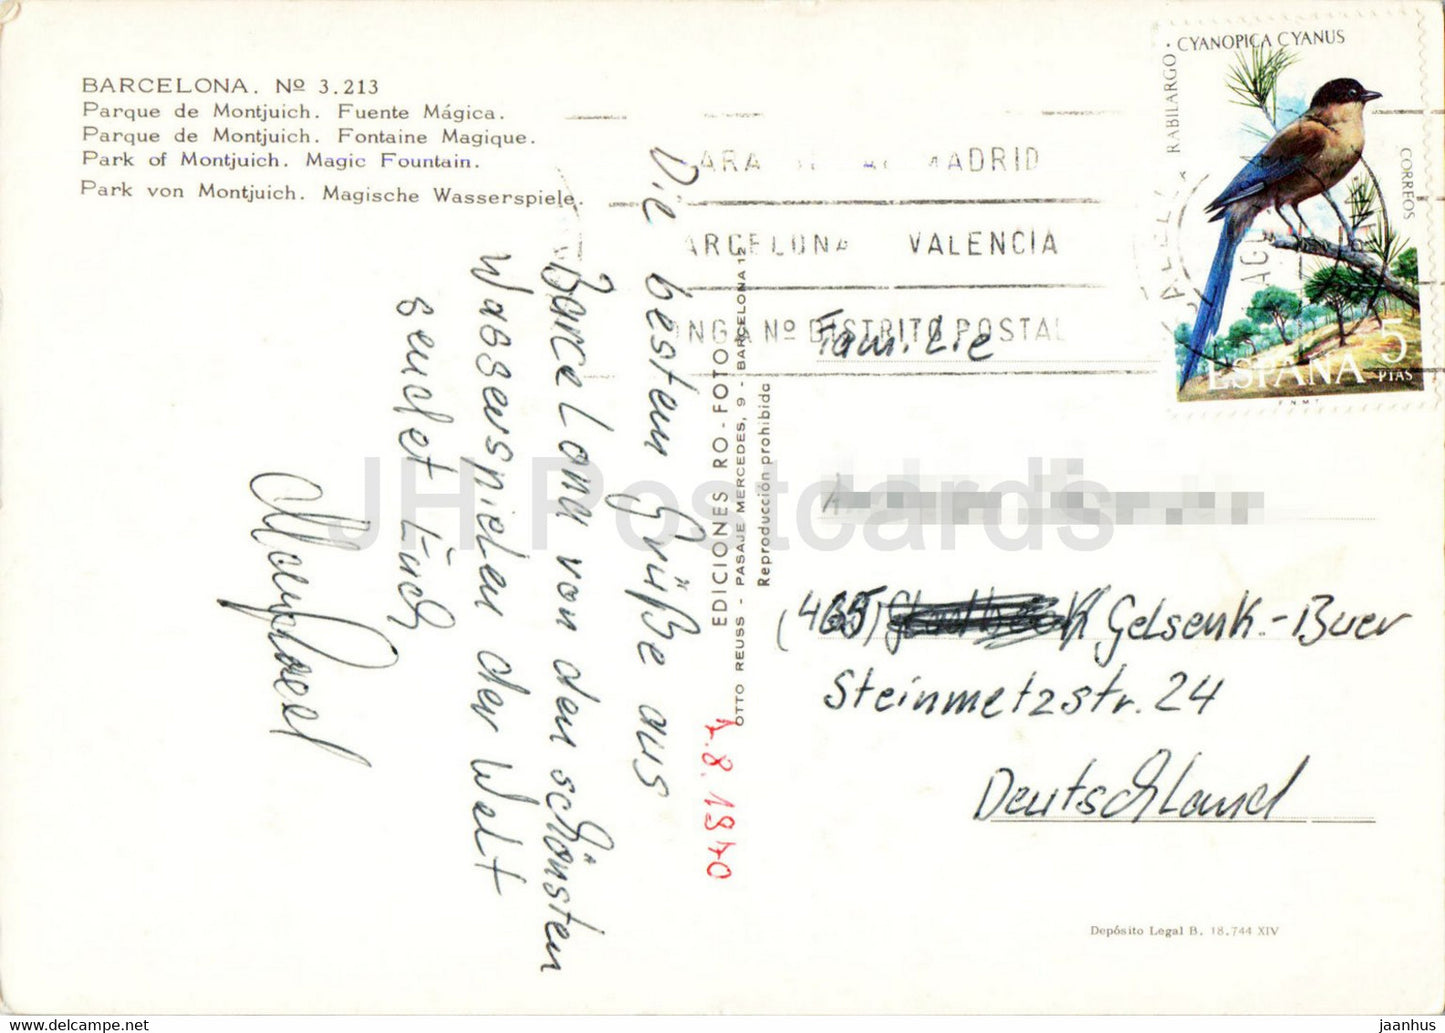 BARCELONA. Nº 3.213
Parque de Montjuich. Fuente Mágica.
Parque de Montjuich. Fontaine Magique.
Park of Montjuich. Magic Fountain.
Park von Montjuich. Magische Wasserspiele.
Die besten Grüße aus
Barcelona von den schönsten
Wasserspielen der Welt
sendet Euch
Manfred
EDICIONES RO-FOTO
OTTO REUSS - PASAJE MERCEDES, 9 - BARCELONA 12
Reproducción prohibida
MADRID
ARCELONA VALENCIA
ONGA Nº DISTRITO POSTAL
CYANOPICA CYANUS
RABILARGO
CORREOS
ESPAÑA 5
PTAS
F.N.M.T.
AGO
Familie
(465) Gelsenk.-Buer
Steinmetzstr. 24
Deutschland
Depósito Legal B. 18.744 XIV
JH Postcards
jaanhus
© www.delcampe.net